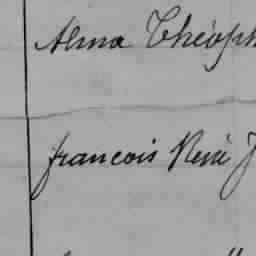 Alma Théoph
francois René J